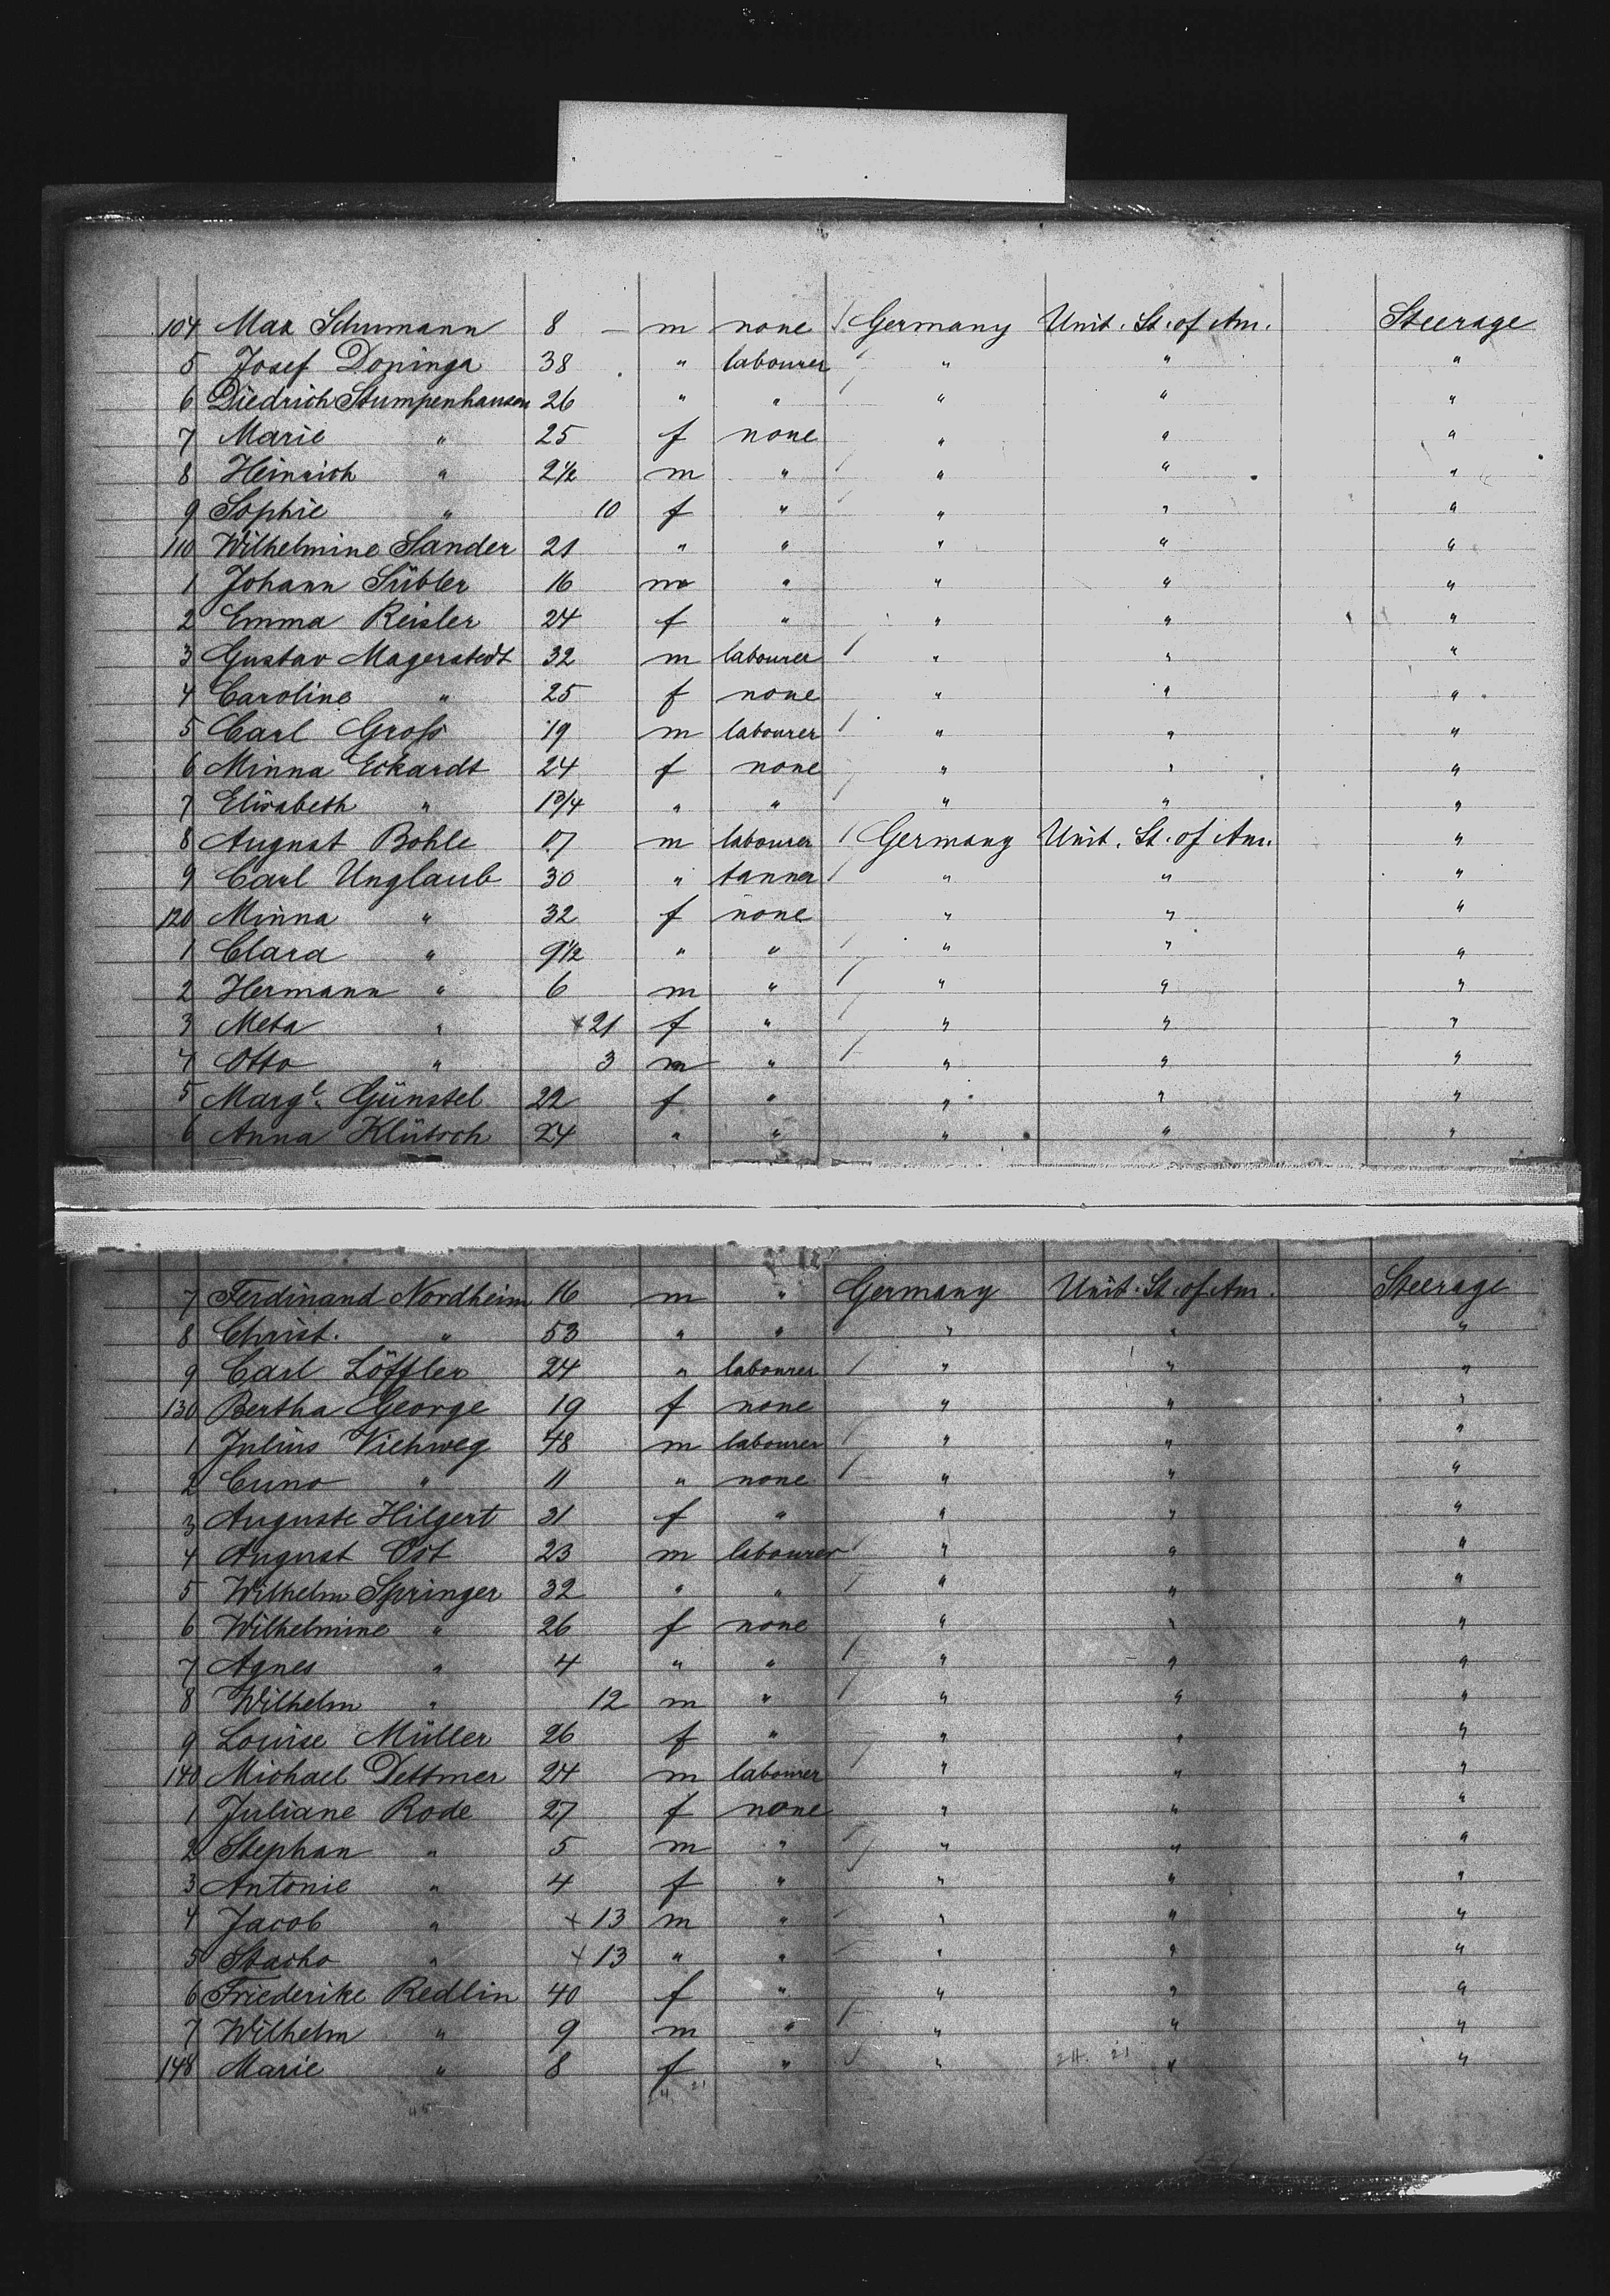 104 Max Schumann 8 — m none Germany Unit. St. of Am. Steerage
5 Josef Doninga 38 " labourer " " "
6 Diedrich Stumpenhausen 26 " " " " "
7 Marie " 25 f none " " "
8 Heinrich " 2 1/2 m " " " "
9 Sophie " 10 f " " " "
110 Wilhelmine Sander 21 " " " " "
1 Johann Sübler 16 m " " " "
2 Emma Reisler 24 f " " " "
3 Gustav Magerstedt 32 m labourer " " "
4 Caroline " 25 f none " " "
5 Carl Groß 19 m labourer " " "
6 Minna Eckardt 24 f none " " "
7 Elisabeth " 1 3/4 " " " " "
8 August Bohle 17 m labourer Germany Unit. St. of Am. "
9 Carl Unglaub 30 " tanner " " "
120 Minna " 32 f none " " "
1 Clara " 9 1/2 " " " " "
2 Hermann " 6 m " " " "
3 Meta " 21 f " " " "
4 Otto " 3 m " " " "
5 Marg. Günstel 22 f " " " "
6 Anna Klütsch 24 " " " " "
7 Ferdinand Nordheim 16 m " Germany Unit. St. of Am. Steerage
8 Christ. " 53 " " " " "
9 Carl Löffler 24 " labourer " " "
130 Bertha George 19 f none " " "
1 Julius Viehweg 48 m labourer " " "
2 Cuno " 11 " none " " "
3 Auguste Hilgert 31 f " " " "
4 August Ost 23 m labourer " " "
5 Wilhelm Springer 32 " " " " "
6 Wilhelmine " 26 f none " " "
7 Agnes " 4 " " " " "
8 Wilhelm " 12 m " " " "
9 Louise Müller 26 f " " " "
140 Michael Dettmer 24 m labourer " " "
1 Juliane Rode 27 f none " " "
2 Stephan " 5 m " " " "
3 Antonie " 4 f " " " "
4 Jacob " + 13 m " " " "
5 Stacho " + 13 " " " " "
6 Friederike Redlin 40 f " " " "
7 Wilhelm " 9 m " " " "
148 Marie " 8 f " " " "